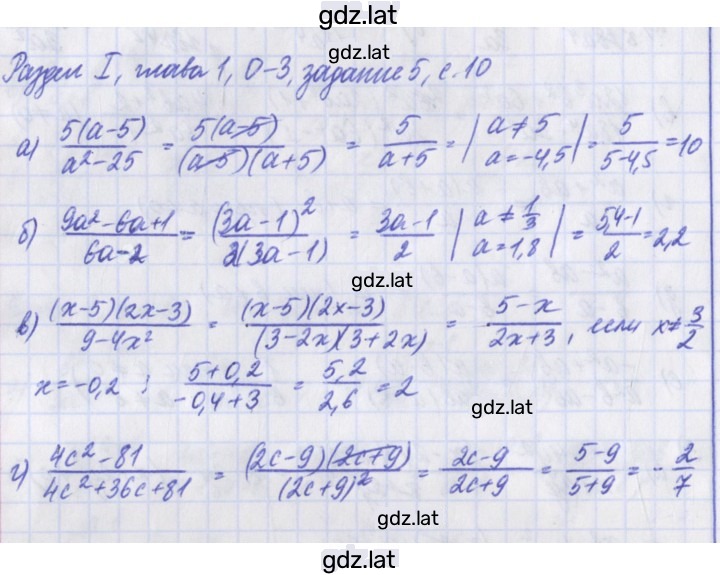 gdz.lat
gdz.lat
Раздел I, глава 1, О-3, задание 5, с. 10
а) 5(a-5)/(a²-25) = 5(a-5)/((a-5)(a+5)) = 5/(a+5) = | a≠5 a=-4,5 | = 5/(5-4,5) = 10
б) (9a²-6a+1)/(6a-2) = (3a-1)²/(2(3a-1)) = (3a-1)/2 | a≠1/3 a=1,8 | = (5,4-1)/2 = 2,2
gdz.lat
в) (x-5)(2x-3)/(9-4x²) = (x-5)(2x-3)/((3-2x)(3+2x)) = (5-x)/(2x+3), если x≠3/2
x=-0,2 : (5+0,2)/(-0,4+3) = 5,2/2,6 = 2
gdz.lat
г) (4c²-81)/(4c²+36c+81) = (2c-9)(2c+9)/(2c+9)² = (2c-9)/(2c+9) = (5-9)/(5+9) = -2/7
gdz.lat
gdz.lat